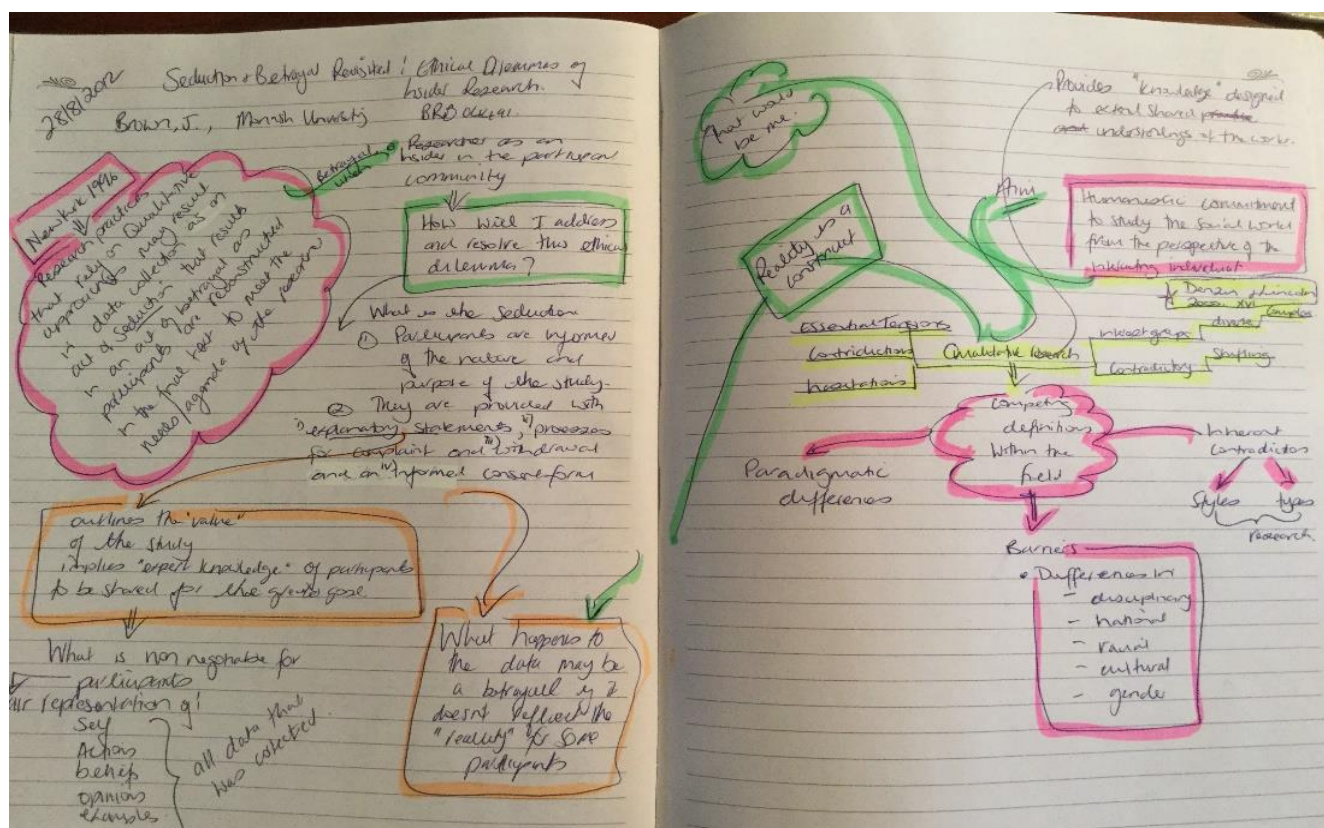 28/8/2012
Seduction & Betrayal Revisited: Ethical Dilemmas of
Insider Research.
Brown, J., Monash University
Newkirk 1996
Research practices
that rely on Qualitative
approaches may result
in data collection as an
act of seduction that results
in an act of betrayal as
participants are reconstructed
in the final text to meet the
needs/agenda of the researcher
Betrayal
Researcher as an
insider in the participant
community
How will I address
and resolve this ethical
dilemma?
What is the seduction
① Participants are informed
of the nature and
purpose of the study.
② They are provided with
i) explanatory statements, ii) processes
for complaint and iii) withdrawal
and an iv) informed consent form
outlines the "value"
of the study
implies "expert knowledge" of participants
to be shared for the
What is non negotiable for
participants
representation of:
Self
Actions
beliefs
opinions
examples
all data that
was collected.
What happens to
the data may be
a betrayal if it
doesn't reflect the
"reality" for some
participants
that would
be me.
Provides "knowledge" designed
to extend shared
understandings of the work.
Aim
Humanistic commitment
to study the social world
from the perspective of the
interacting individual
Denzin & Lincoln
xvi
Reality is a
construct
Essential Tensions
Contradictions
hesitations
Qualitative research
interest groups
diverse
complex
contradictory
Competing
definitions
Within the
field
Paradigmatic
differences
Inherent
contradictions
Styles
types
research.
Barriers
• Differences in
- disciplinary
- national
- racial
- cultural
- gender